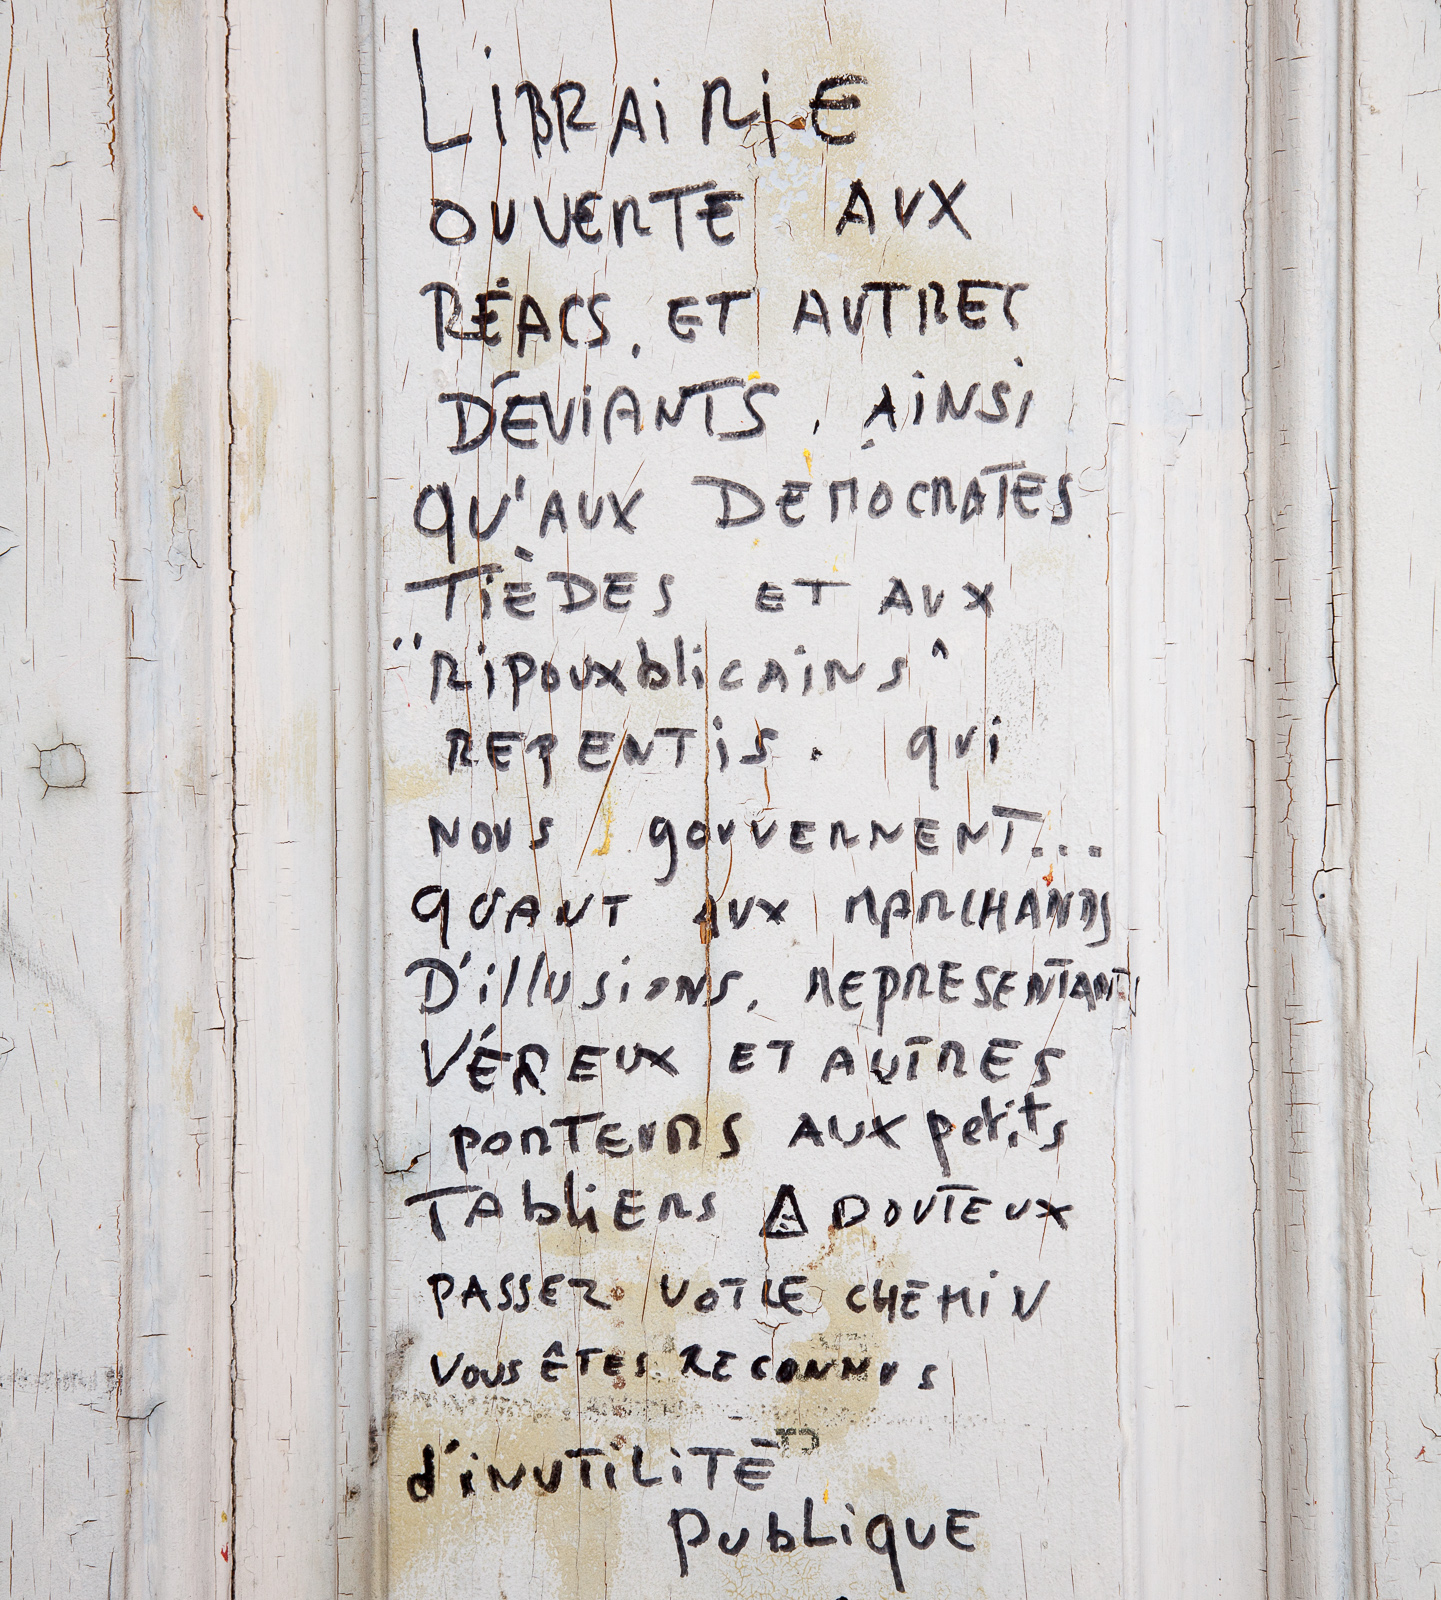 LiBRAiRiE
OUVERTE AUX
RÉACS, ET AUTRES
DÉViANTS, AiNSi
QU'AUX DEMOCRATES
TiÈDES ET AUX
"Ripouxblicains"
REPENTiS. qui
NOUS gouvERNENT...
QUANT AUX MARCHANDS
D'illusions, REPRESENTANTS
VÉREUX ET AUTRES
PORTEURS AUX petits
TAbliERS DOUTEUX
PASSEZ VOTRE CHEMiN
VOUS ÊTES RECONNUS
d'iNUTiLiTÉ
PubLiQUE